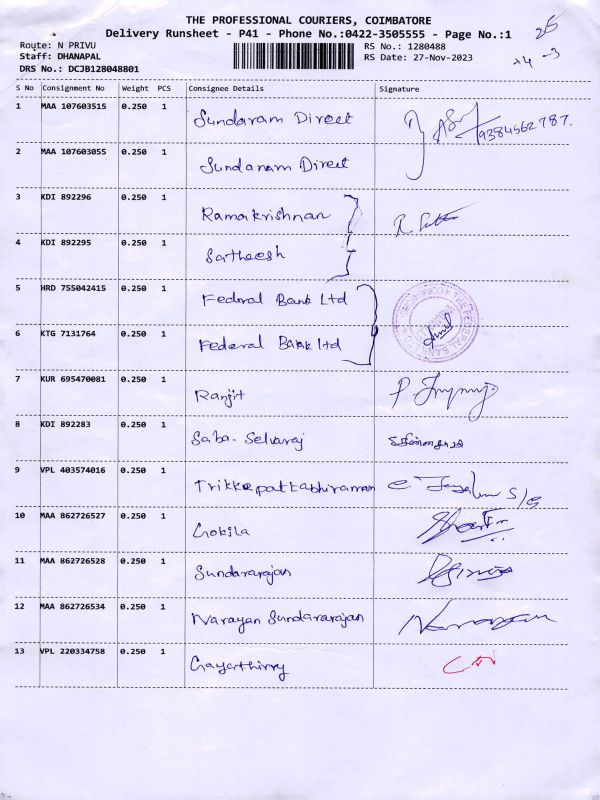 THE PROFESSIONAL COURIERS, COIMBATORE
Delivery Runsheet - P41 - Phone No.:0422-3505555 - Page No.:1
Route: N PRIVU
Staff: DHANAPAL
DRS No.: DCJB128048801
RS No.: 1280488
RS Date: 27-Nov-2023
S No Consignment No Weight PCS Consignee Details Signature
1 MAA 107603515 0.250 1 Sundaram Direct 9384562787.
2 MAA 107603055 0.250 1 Sundaram Direct
3 KDI 892296 0.250 1 Ramakrishnan
4 KDI 892295 0.250 1 Sartheesh
5 HRD 755042415 0.250 1 Federal Bank Ltd
6 KTG 7131764 0.250 1 Federal Bank ltd
7 KUR 695470081 0.250 1 Ranjit
8 KDI 892283 0.250 1 Saba-Selvaraj
9 VPL 403574016 0.250 1 Trikkepattabhiraman
10 MAA 862726527 0.250 1 Gokila
11 MAA 862726528 0.250 1 Sundararajan
12 MAA 862726534 0.250 1 Narayan Sundararajan Narayan
13 VPL 220334758 0.250 1 Gayathirry